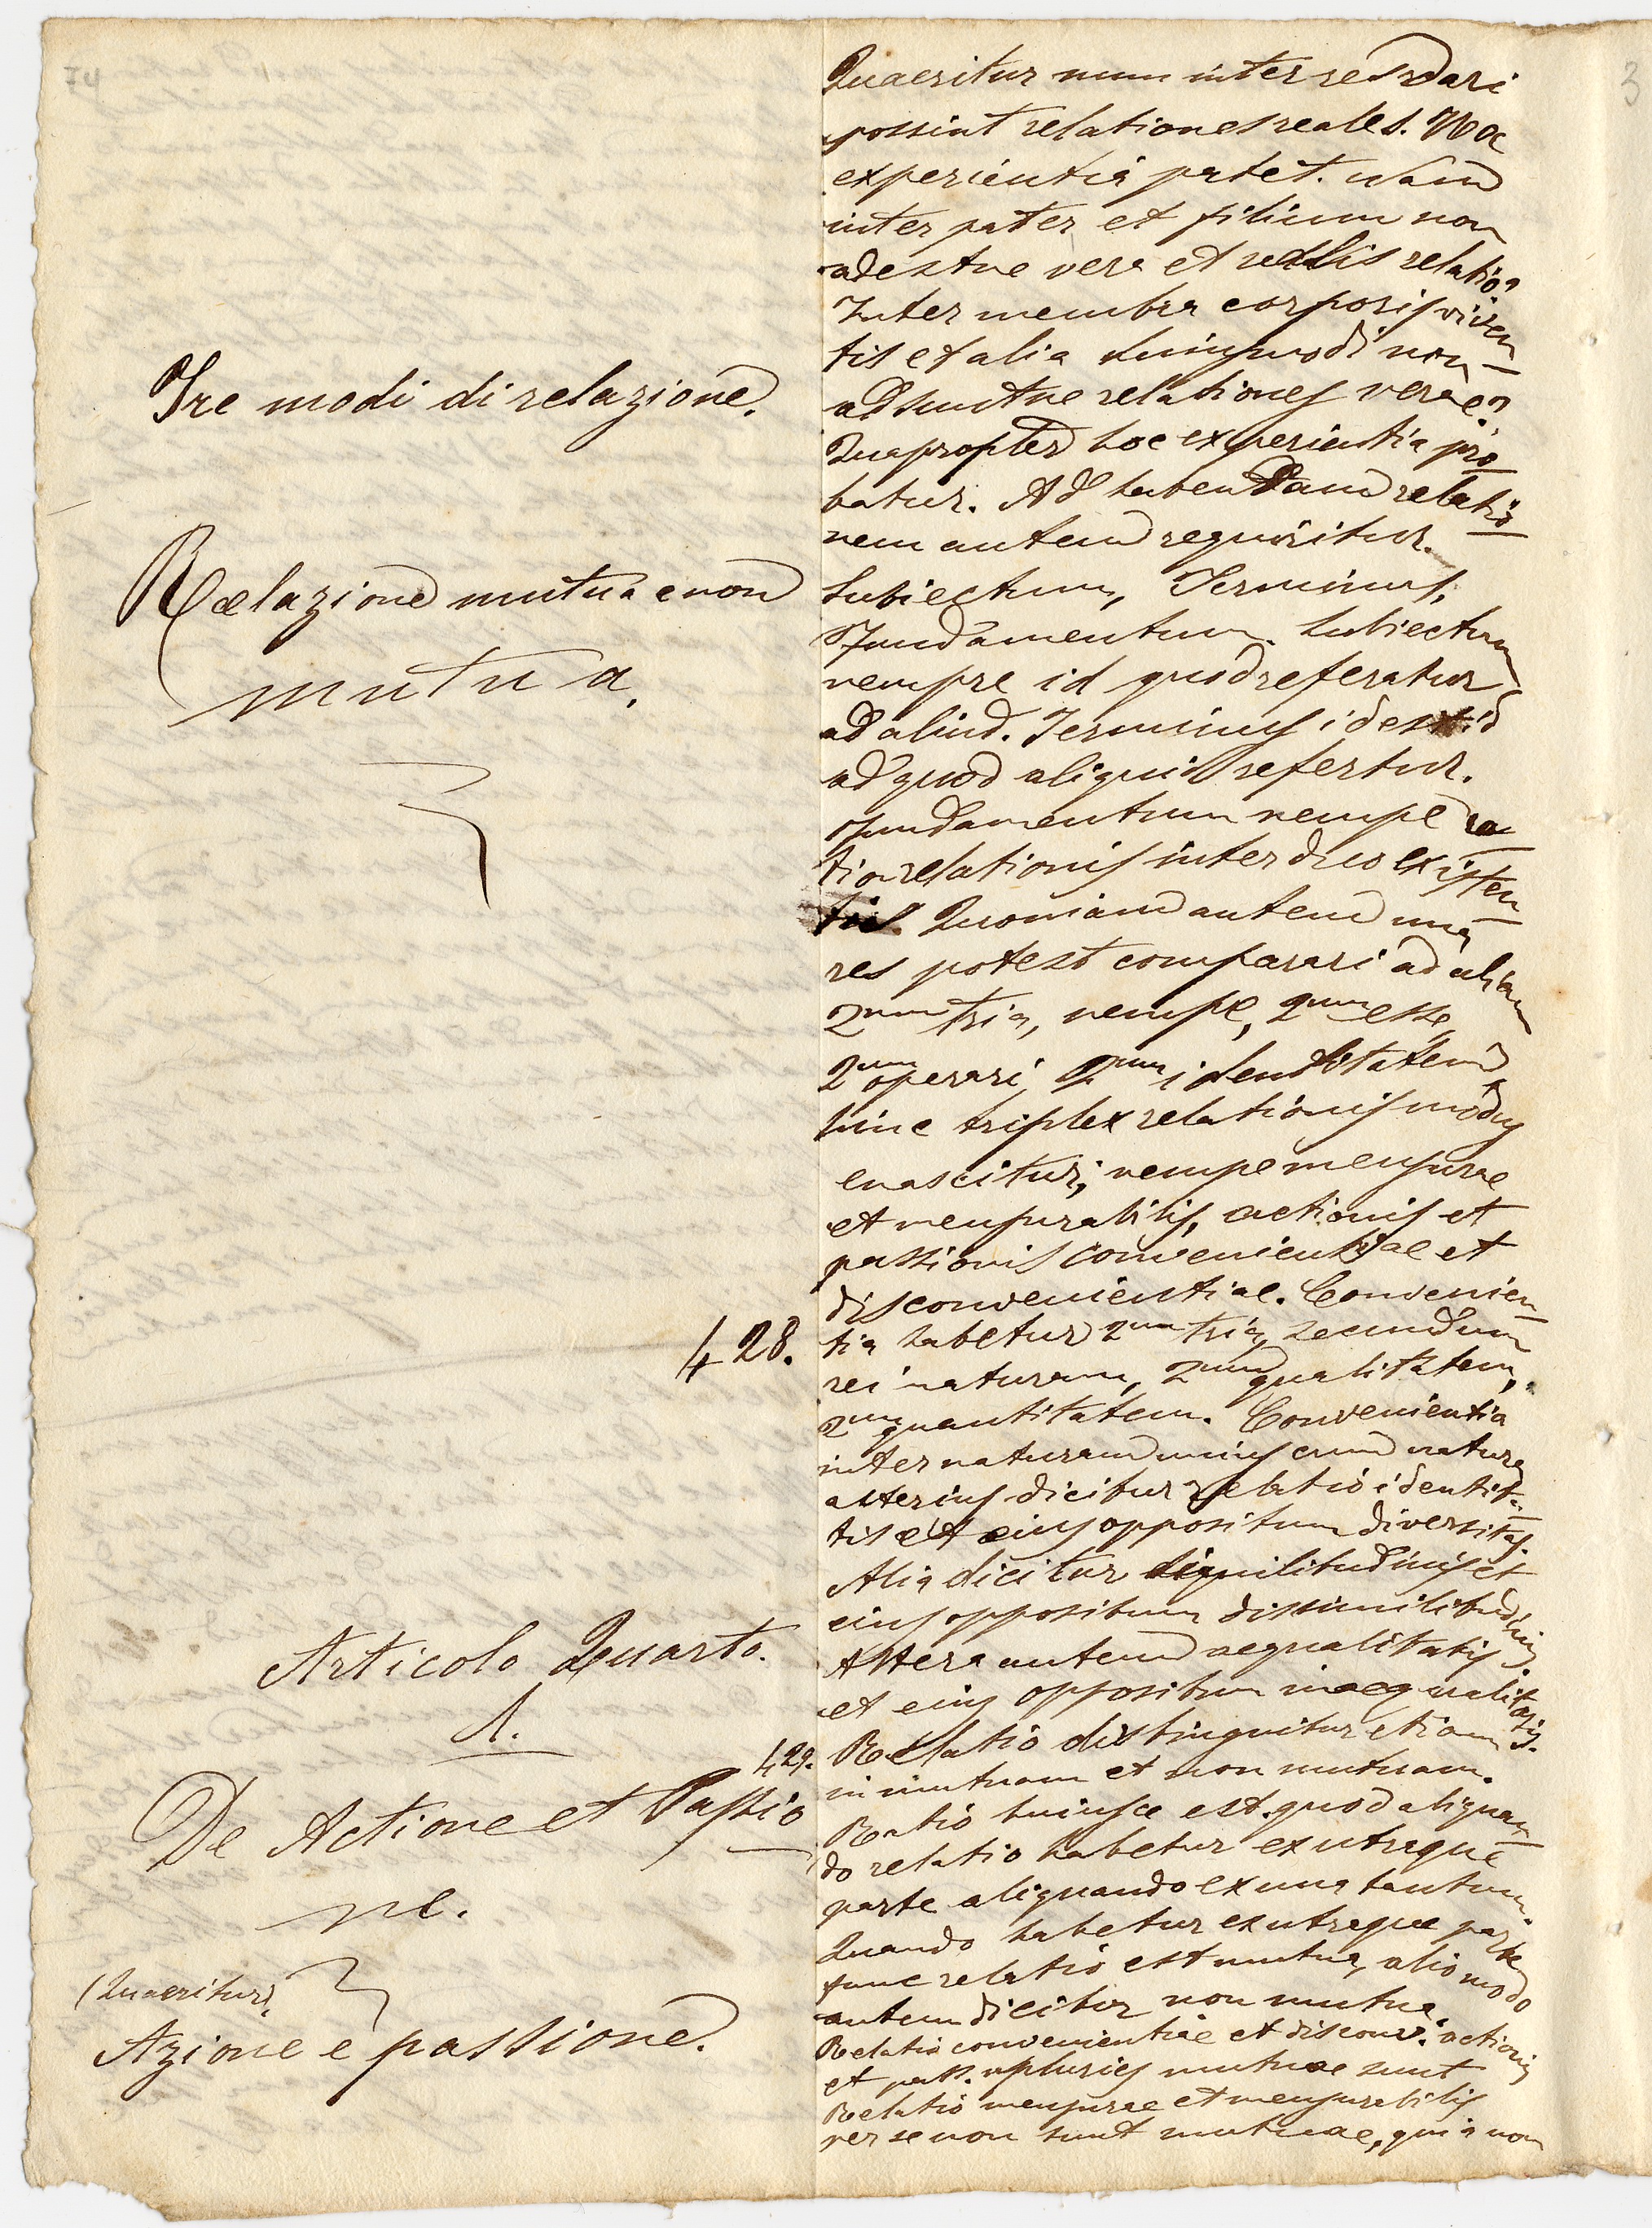 Quaeritur num inter res dari
possint relationes reales. Hoc
experientia patet. Nam
inter pater et filium non
adestne vera et realis relatio?
Inter membra corporis viven
tis et alia huiusmodi non
adsuntne relationes verae?
Quapropter hoc experientia pro
batur. Ad habendam relatio
nem autem requiritur.
Subiectum, Terminus,
Fundamentum. Subiectum
nempe id quod referatur
ad aliud. Terminus idest id
ad quod aliquid refertur.
Fundamentum nempe ra
tio relationis inter duo existen
tis. Quoniam autem una
res potest comparari ad aliam
2um tria, nempe, 2um esse,
2um operari, 2um identitatem
hinc triplex relationis modus
enascitur; nempe mensurae
et mensurabilis, actionis et
passionis convenientiae et
disconvenientiae. Convenien
tia habetur 2um tria, secundum
rei naturam, 2um qualitatem,
2um quantitatem. Convenientia
inter naturam unius cum natura
alterius dicitur relatio identita
tis et eius oppositum diversitas.
Alia dicitur similitudinis et
eius oppositum dissimilitudinis.
Altera autem aequalitatis
et eius oppositum inaequalitatis.
Relatio distinguitur etiam
in mutuam et non mutuam.
Ratio huiusce est quod aliquan
do relatio habetur ex utraque
parte aliquando ex una tantum.
Quando habetur ex utraque parte
tunc relatio est mutua, alio modo
autem dicitur non mutua.
Relatio convenientiae et disconv. actionis
et pass. upluries mutuae sunt
Relatio mensurae et mensurabilis
per se non sunt mutuae, quia non
Tre modi di relazione.
Relazione mutua e non
mutua.
428.
Articolo Quarto.
1.
429.
De Actione et Passio
ne.
(Quaeritur)
Azione e passione.
3